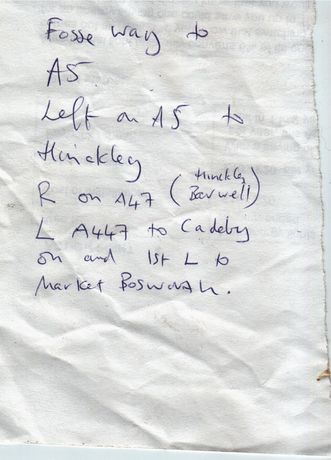 Fosse way to
A5.
Left on A5 to
Hinckley
R on A47 (Hinckley Barwell)
L A447 to Cadeby
on and 1st L to
Market Bosworth.